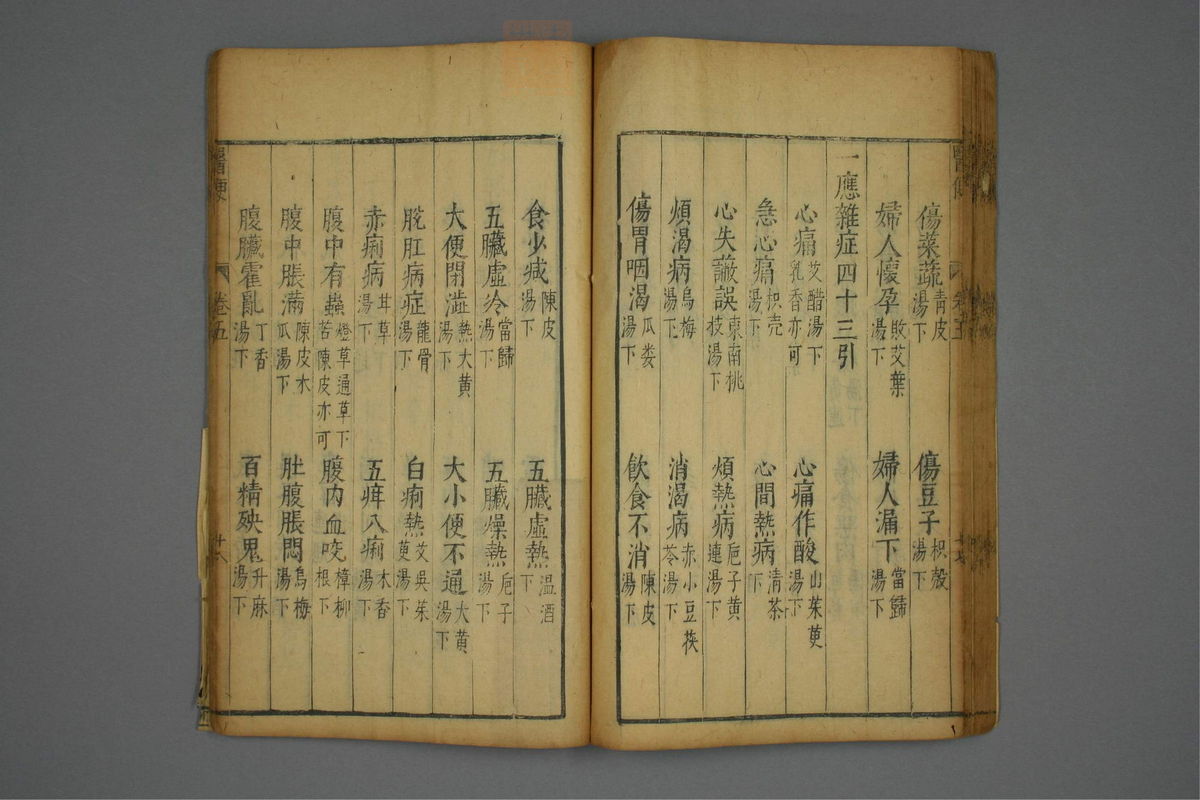 傷菜蔬 青皮湯下 傷豆子 枳殼湯下
婦人懷孕 敗艾葉湯下 婦人漏下 當歸湯下
一應雜症四十三引
心痛 艾醋湯下乳香亦可 心痛作酸 山茱萸湯下
急心痛 枳壳湯下 心間熱病 清茶下
心失譣誤 東南桃枝湯下 煩熱病 梔子黃連湯下
煩渴病 烏梅湯下 消渴病 赤小豆莢苓湯下
傷胃咽渴 瓜蔞湯下 飲食不消 陳皮湯下
食少減 陳皮湯下 五臟虛熱 温酒下
五臟虛冷 當歸湯下 五臟燥熱 梔子湯下
大便閉澁 熱大黃湯下 大小便不通 大黃湯下
脫肛病症 龍骨湯下 白痢熱 艾吳茱萸湯下
赤痢病 甘草湯下 五痒八痢 木香湯下
腹中有蟲 燈草通草下苦陳皮亦可 腹内血咬 樟柳根下
腹中脹滿 陳皮木瓜湯下 肚腹脹悶 烏梅湯下
腹臟霍亂 丁香湯下 百精殃鬼 升麻湯下
醫便 卷五 廿六